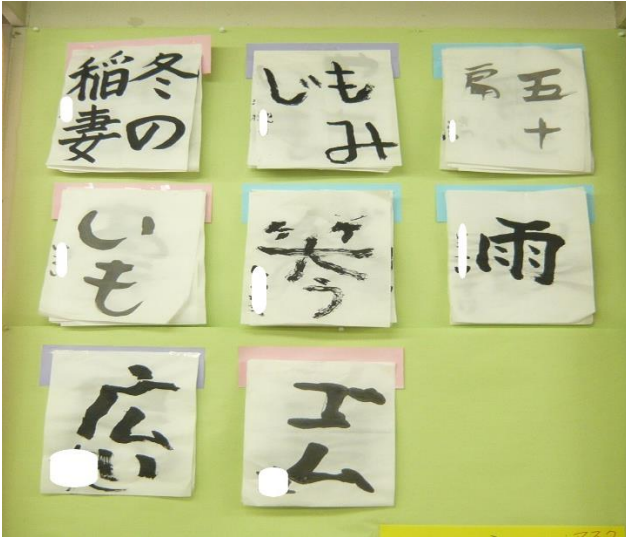 冬の
稲妻
もみ
じ
五十
肩
いも
笑う
雨
広い
ゴム